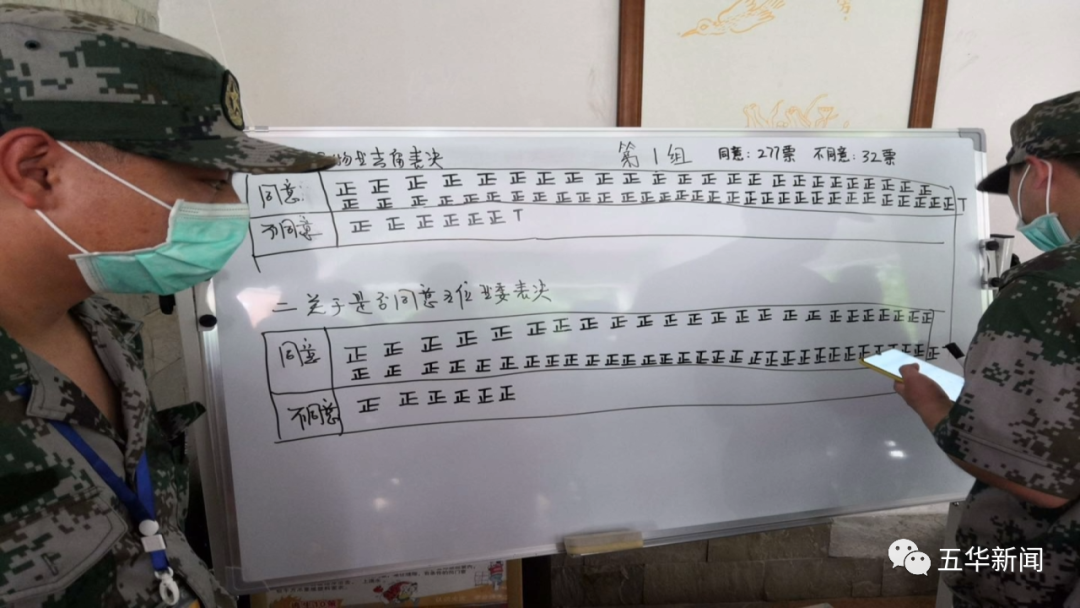 物业去留表决 第1组 同意：277票 不同意：32票
同意： 正正正正正正正正正正正正正正正正正正正正正正正正
正正正正正正正正正正正正正正正正正正正正正正正正正正正正正正正T
不同意 正正正正正正T
二关于是否同意 业委表决
同意 正正正正正正正正正正正正正正正正正正正正正正正正
正正正正正正正正正正正正正正正正正正正正正正正正正正正正正正
不同意 正正正正正正
五华新闻